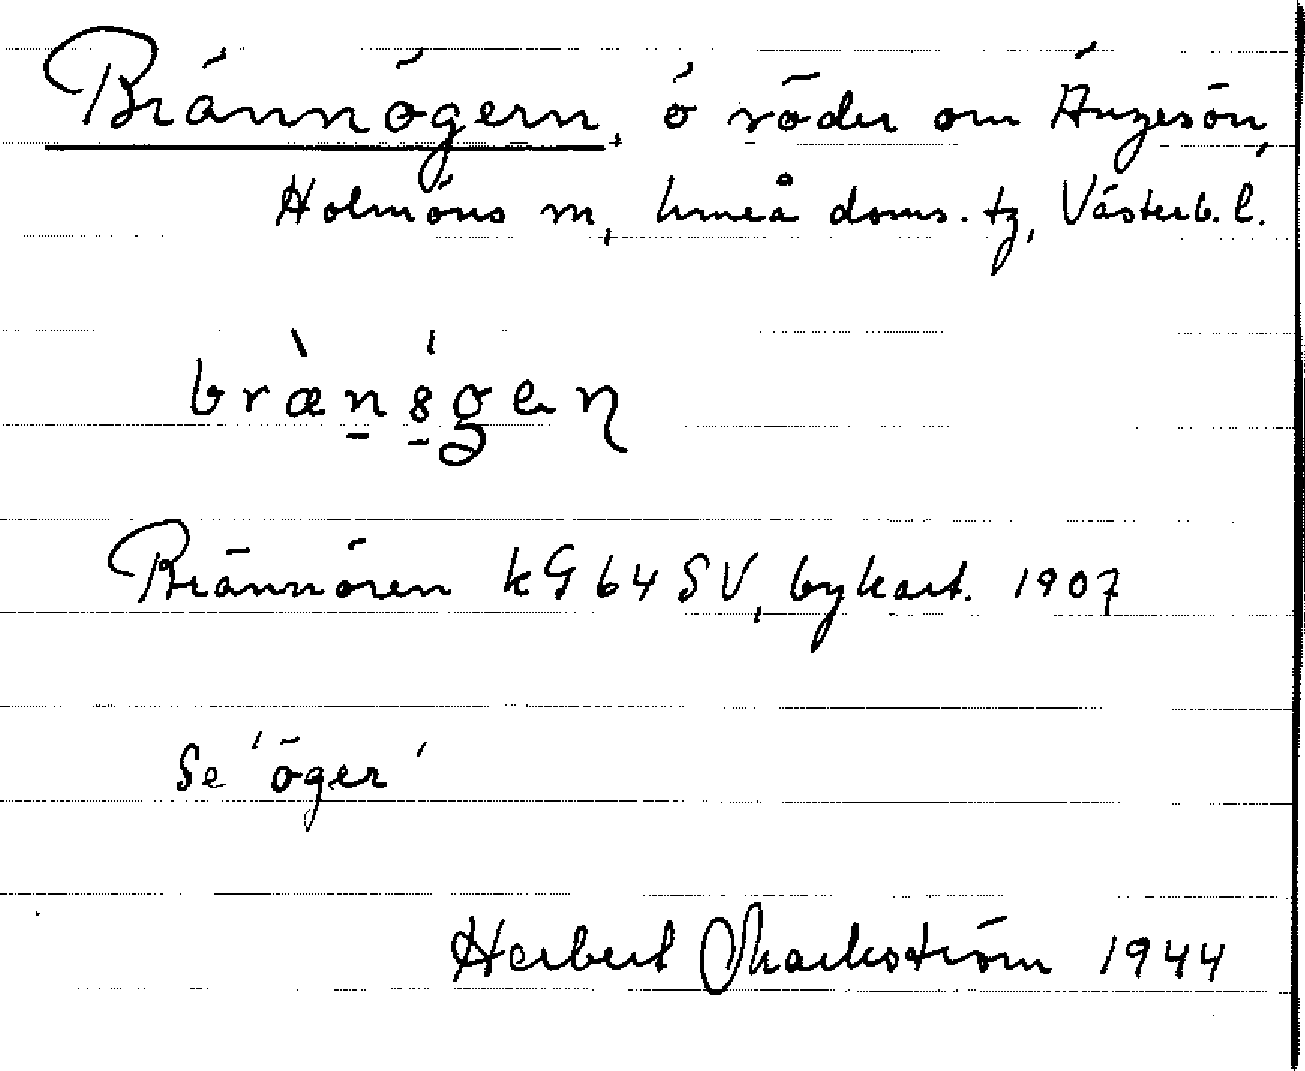 Brännögern, ö söder om Ängesön,
Holmöns sn, Umeå doms. tg, Västerb. l.
Brännören kG 64 SV, bykart. 1907
Se 'öger'
Herbert Markström 1944